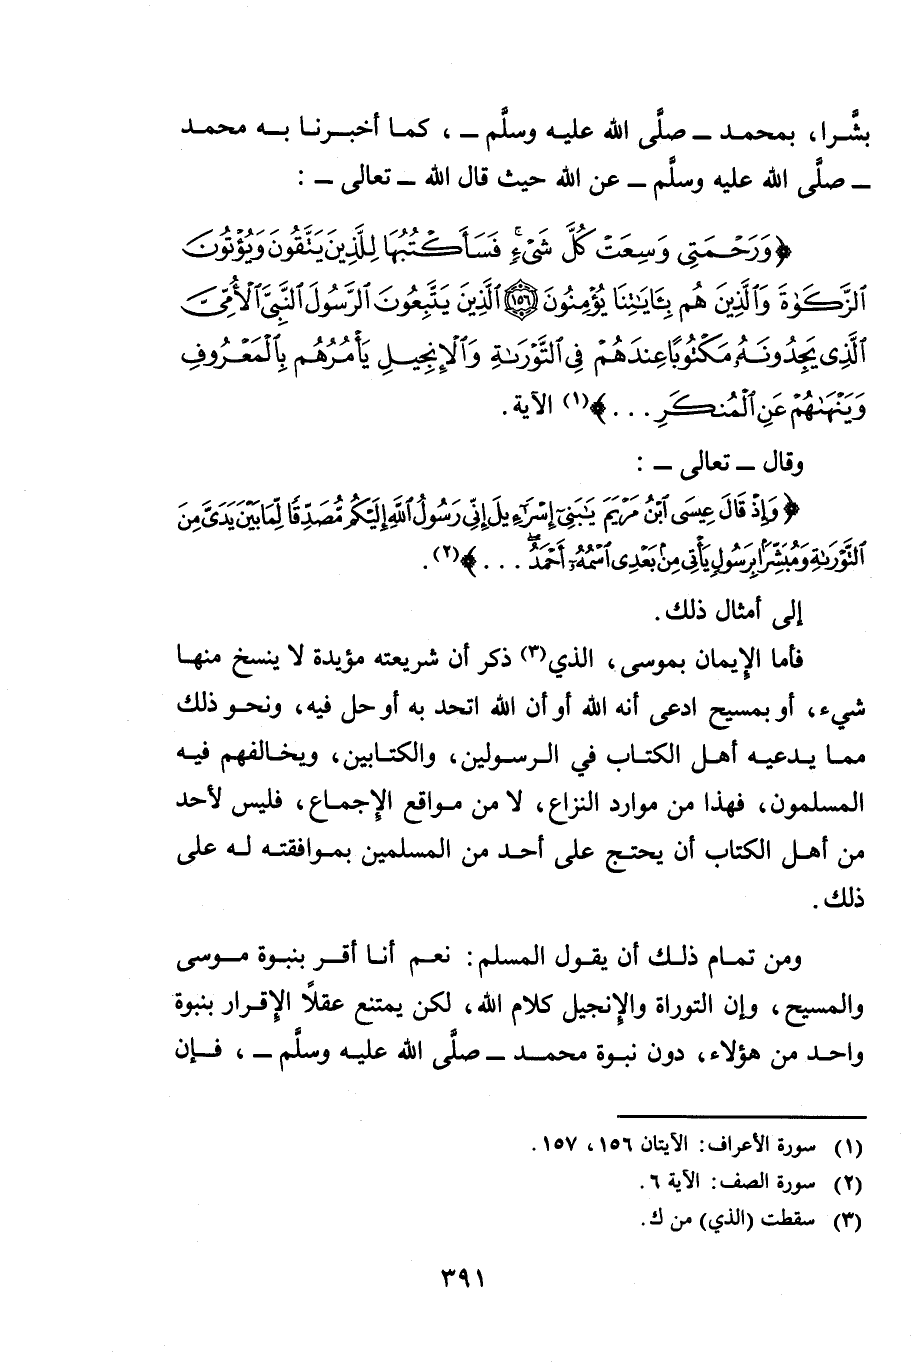 بشَّرا، بمحمد ــ صلَّى الله عليه وسلَّم ــ ، كما أخبرنا به محمد
ــ صلَّى الله عليه وسلَّم ــ عن الله حيث قال الله ــ تعالى ــ :
﴿ وَرَحْمَتِي وَسِعَتْ كُلَّ شَيْءٍ فَسَأَكْتُبُهَا لِلَّذِينَ يَتَّقُونَ وَيُؤْتُونَ
ٱلزَّكَوٰةَ وَٱلَّذِينَ هُم بِـَٔايَـٰتِنَا يُؤْمِنُونَ ١٥٦ ٱلَّذِينَ يَتَّبِعُونَ ٱلرَّسُولَ ٱلنَّبِيَّ ٱلْأُمِّيَّ
ٱلَّذِي يَجِدُونَهُۥ مَكْتُوبًا عِندَهُمْ فِي ٱلتَّوْرَىٰةِ وَٱلْإِنجِيلِ يَأْمُرُهُم بِٱلْمَعْرُوفِ
وَيَنْهَىٰهُمْ عَنِ ٱلْمُنكَرِ . . . ﴾(١) الآية .
وقال ــ تعالى ــ :
﴿ وَإِذْ قَالَ عِيسَى ٱبْنُ مَرْيَمَ يَـٰبَنِيٓ إِسْرَٰٓءِيلَ إِنِّي رَسُولُ ٱللَّهِ إِلَيْكُم مُّصَدِّقًا لِّمَا بَيْنَ يَدَيَّ مِنَ
ٱلتَّوْرَىٰةِ وَمُبَشِّرًۢا بِرَسُولٍ يَأْتِي مِنۢ بَعْدِي ٱسْمُهُۥٓ أَحْمَدُ ۖ . . . ﴾(٢).
إلى أمثال ذلك .
فأما الإيمان بموسى، الذي(٣) ذكر أن شريعته مؤيدة لا ينسخ منها
شيء، أو بمسيح ادعى أنه الله أو أن الله اتحد به أو حل فيه، ونحو ذلك
مما يدعيه أهل الكتاب في الرسولين، والكتابين، ويخالفهم فيه
المسلمون، فهذا من موارد النزاع، لا من مواقع الإجماع، فليس لأحد
من أهل الكتاب أن يحتج على أحد من المسلمين بموافقته له على
ذلك .
ومن تمام ذلك أن يقول المسلم: نعم أنا أقر بنبوة موسى
والمسيح، وإن التوراة والإنجيل كلام الله، لكن يمتنع عقلاً الإقرار بنبوة
واحد من هؤلاء، دون نبوة محمد ــ صلَّى الله عليه وسلَّم ــ ، فإن
(١) سورة الأعراف: الآيتان ١٥٦، ١٥٧ .
(٢) سورة الصف: الآية ٦ .
(٣) سقطت (الذي) من ك.
٣٩١